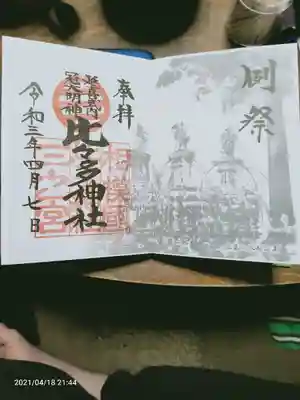 例祭
奉拝
冠大明神
比々多神社
相模國
三之宮
令和三年四月七日
2021/04/18 21:44